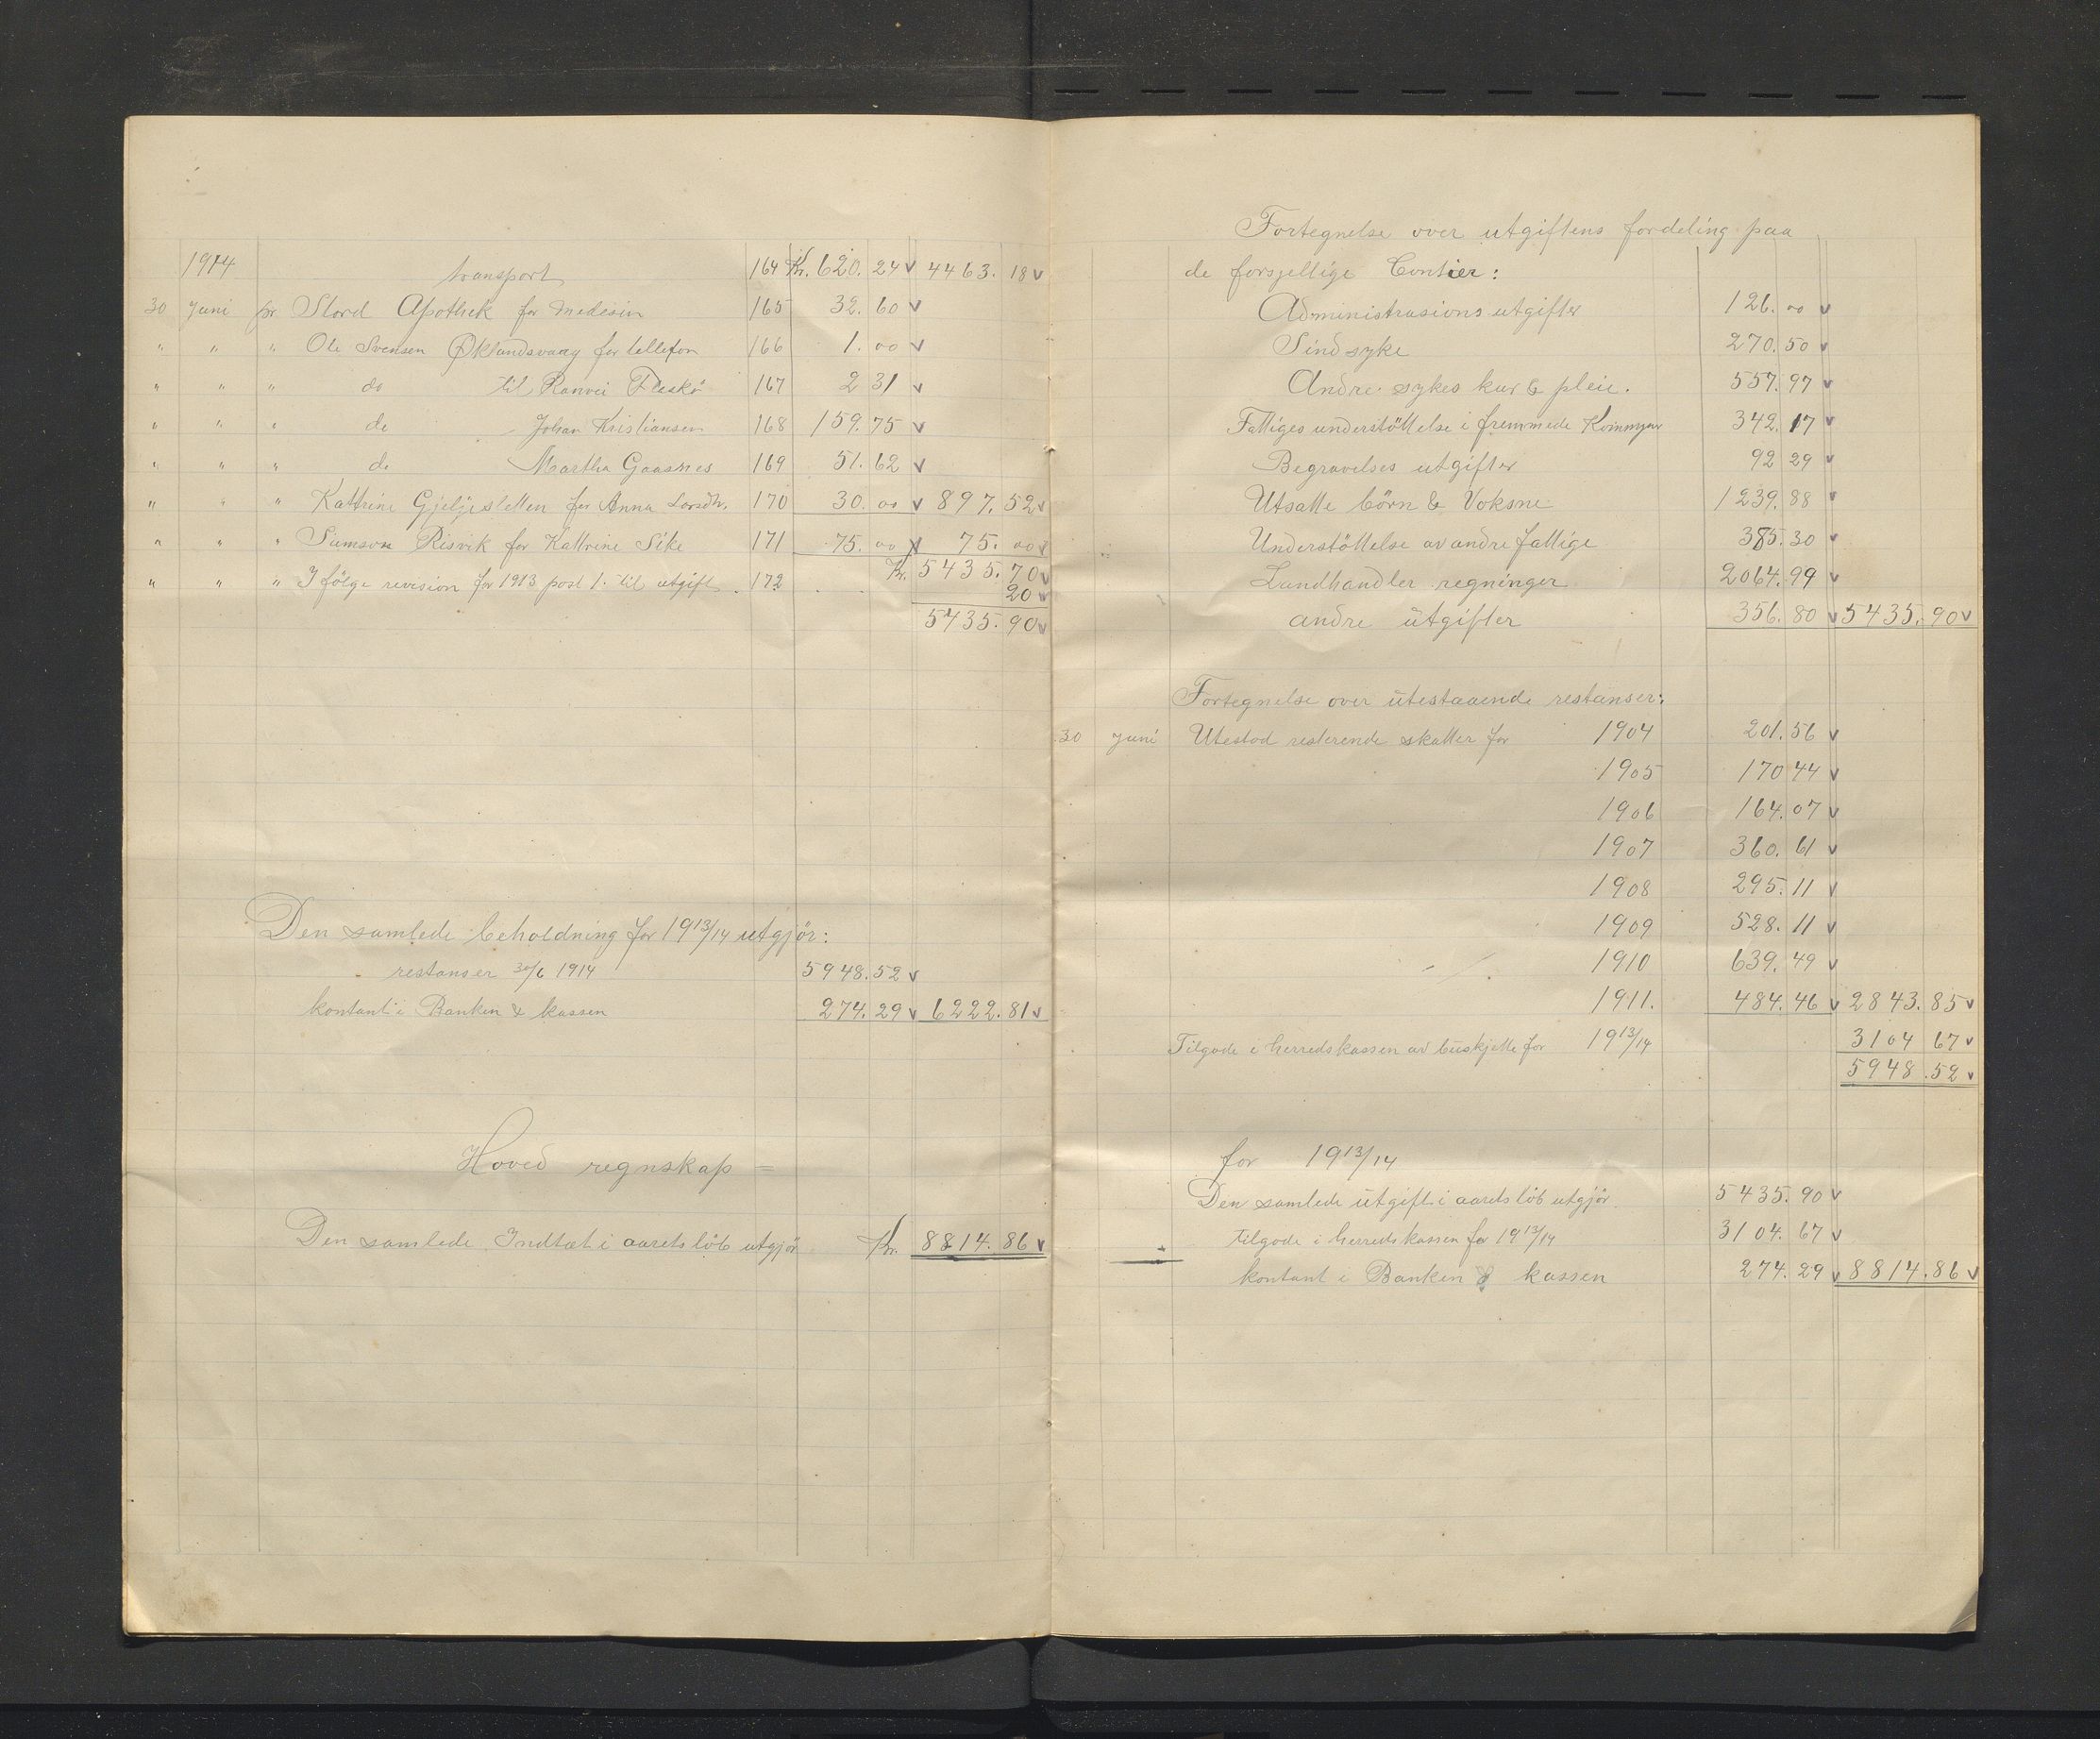 1914 transport 164 Kr. 620. 24 v 4463. 18 v
30 Juni pr Stord Apothek for medesin 165 32. 60 v
" " " Ole Svensen Øklandsvaag for tellefon 166 1. 00 v
" " " do til Ranvei Fleskø 167 2 31 v
" " " do Johan Kristiansen 168 159. 75 v
" " " do Martha Gaasnes 169 51. 62 v
" " " Kattrine for Anna 170 30. 00 v 897. 52 v
" " " Samson Risvik for Kattrine Sike 171 75. 00 v 75. 00 v
Kr. 5435. 70 v
" " " I følge revision for 1913 post 1. til utgift 172 20 v
5435. 90 v
Den samlede beholdning for 1913/14 utgjör:
restanser 30/6 1914 5948. 52 v
kontant i Banken & kassen 274. 29 v 6222. 81 v
Hoved regnskap =
Den samlede Indtæt i aarets löb utgjör Kr. 8814. 86 v
Fortegnelse over utgiftens fordeling paa
de forsjellige Contier:
Administrasions utgifter 126. 00 v
Sindsyke 270. 50 v
Andre sykes kur & pleie. 557. 97 v
Fattiges understöttelse i fremmede Kommuner 342. 17 v
Begravelses utgifter 92 29 v
Utsatte börn & Voksne 1239. 88 v
Understöttelse av andre fattige 385. 30 v
Landhandler regninger 2064. 99 v
andre utgifter 356. 80 v 5435. 90 v
Fortegnelse over utestaaende restanser:
30 Juni Utestod resterende skatter for 1904 201. 56 v
1905 170 44 v
1906 164. 07 v
1907 360. 61 v
1908 295. 11 v
1909 528. 11 v
1910 639. 49 v
1911. 484. 46 v 2843. 85 v
Tilgode i herredskassen av buskjette for 1913/14 3104 67 v
5948. 52 v
for 1913/14
Den samlede utgift i aarets löb utgjör 5435. 90 v
tilgode i herredskassen for 1913/14 3104. 67 v
kontant i Banken & kassen 274. 29 v 8814. 86 v